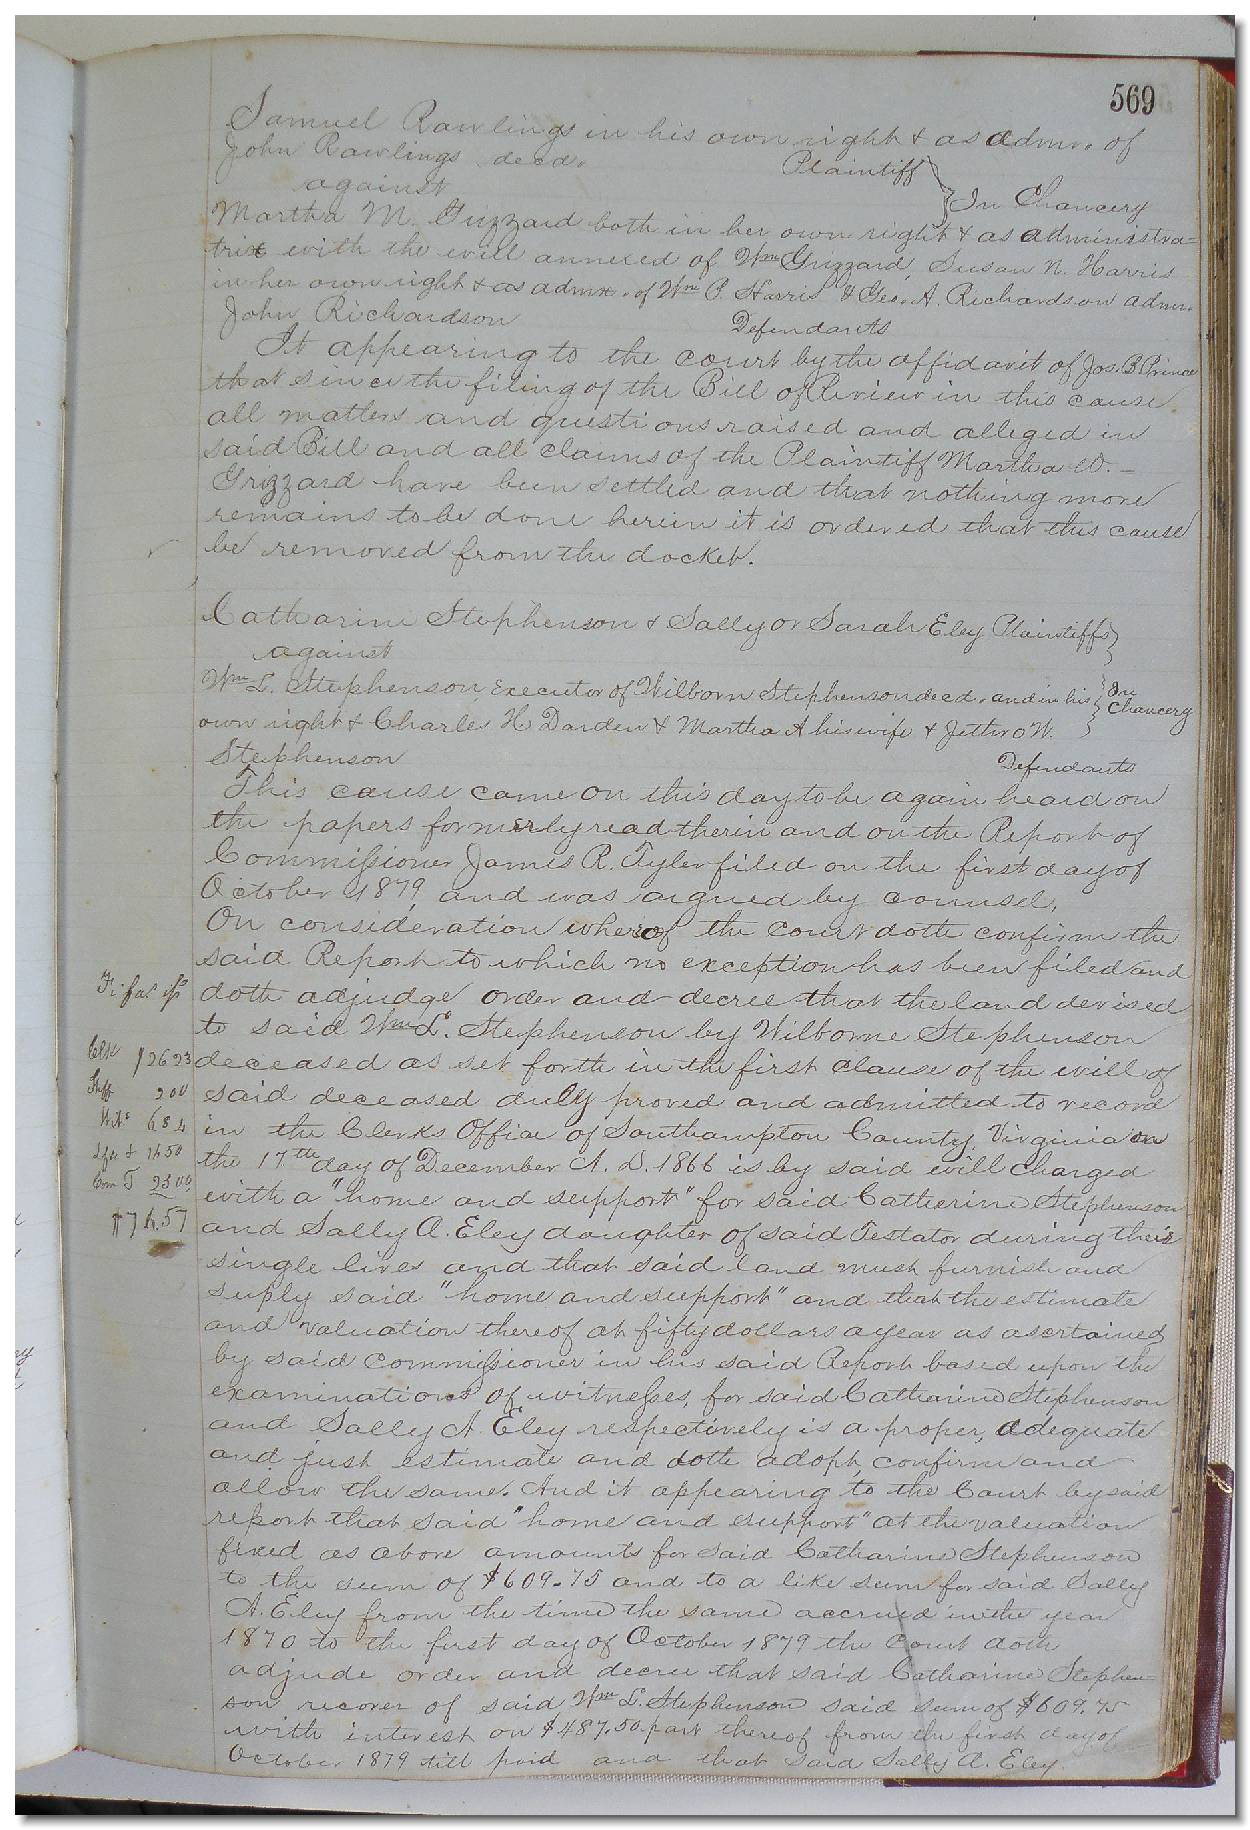 569
Samuel Rawlings in his own right & as admr. of
John Rawlings decd. Plaintiff
against In Chancery
Martha M. Grizzard both in her own right & as administra=
trix with the will annexed of Wm Grizzard, Susan N. Harris
in her own right & as admx. of Wm P. Harris & Geo. A. Richardson admr.
John Richardson Defendants
It appearing to the court by the affidavit of Jos. B. Prince
that since the filing of the Bill of Review in this cause
all matters and questions raised and alleged in
said Bill and all claims of the Plaintiff Martha
Grizzard have been settled and that nothing more
remains to be done herein it is ordered that this cause
be removed from the docket.
Catharine Stephenson & Sally or Sarah Eley Plaintiffs
against
Wm L. Stephenson, Executor of Wilborn Stephenson decd. and in his In
own right & Charles H. Darden & Martha A his wife & Jethro W. Chancery
Stephenson Defendants
This cause came on this day to be again heard on
the papers formerly read therin and on the Report of
Commissioner James R. Tyler filed on the first day of
October 1879, and was argued by counsel,
On consideration whereof the court doth confirm the
said Report to which no exception has been filed and
doth adjudge order and decree that the land devised
to said Wm L. Stephenson by Wilborne Stephenson
deceased as set forth in the first clause of the will of
said deceased duly proved and admitted to record
in the Clerks Office of Southampton County, Virginia on
the 17th day of December A. D. 1866 is by said will charged
with a "home and support" for said Catherine Stephenson
and Sally A. Eley daughter of said Testator during their
single lives and that said land must furnish and
suply said "home and support" and that the estimate
and valuation thereof at fifty dollars a year as ascertained
by said commissioner in his said Report based upon the
examinations of witnesses, for said Catharine Stephenson
and Sally A. Eley respectively is a proper, adequate
and just estimate and doth adopt, confirm and
allow the same. And it appearing to the Court by said
report that said "home and support" at the valuation
fixed as above amounts for said Catharine Stephenson
to the sum of $609.75 and to a like sum for said Sally
A. Eley from the time the same accrued in the year
1870 to the first day of October 1879 the Court doth
adjude order and decree that said Catharine Stephen-
son recover of said Wm L. Stephenson said sum of $609.75
with interest on $487.50 part thereof from the first day of
October 1879 till paid and that said Sally A. Eley.
Fi: fas
Clk $26 23
Shff 2 00
6 84
14 50
Com T 25 00
$74.57